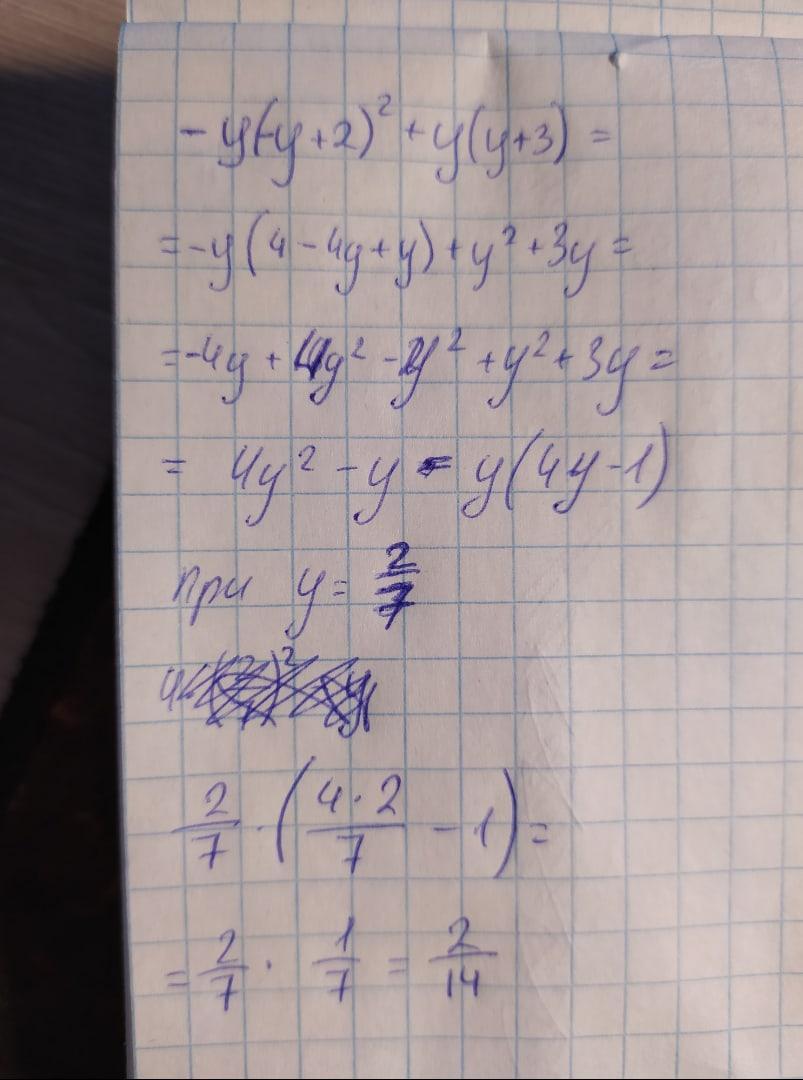 - y(-y+2)² + y(y+3) =
= -y(4 - 4y + y) + y² + 3y =
= -4y + 4y² - y² + y² + 3y =
= 4y² - y = y(4y - 1)
при y = 2/7
2/7 · (4·2/7 - 1) =
= 2/7 · 1/7 = 2/14